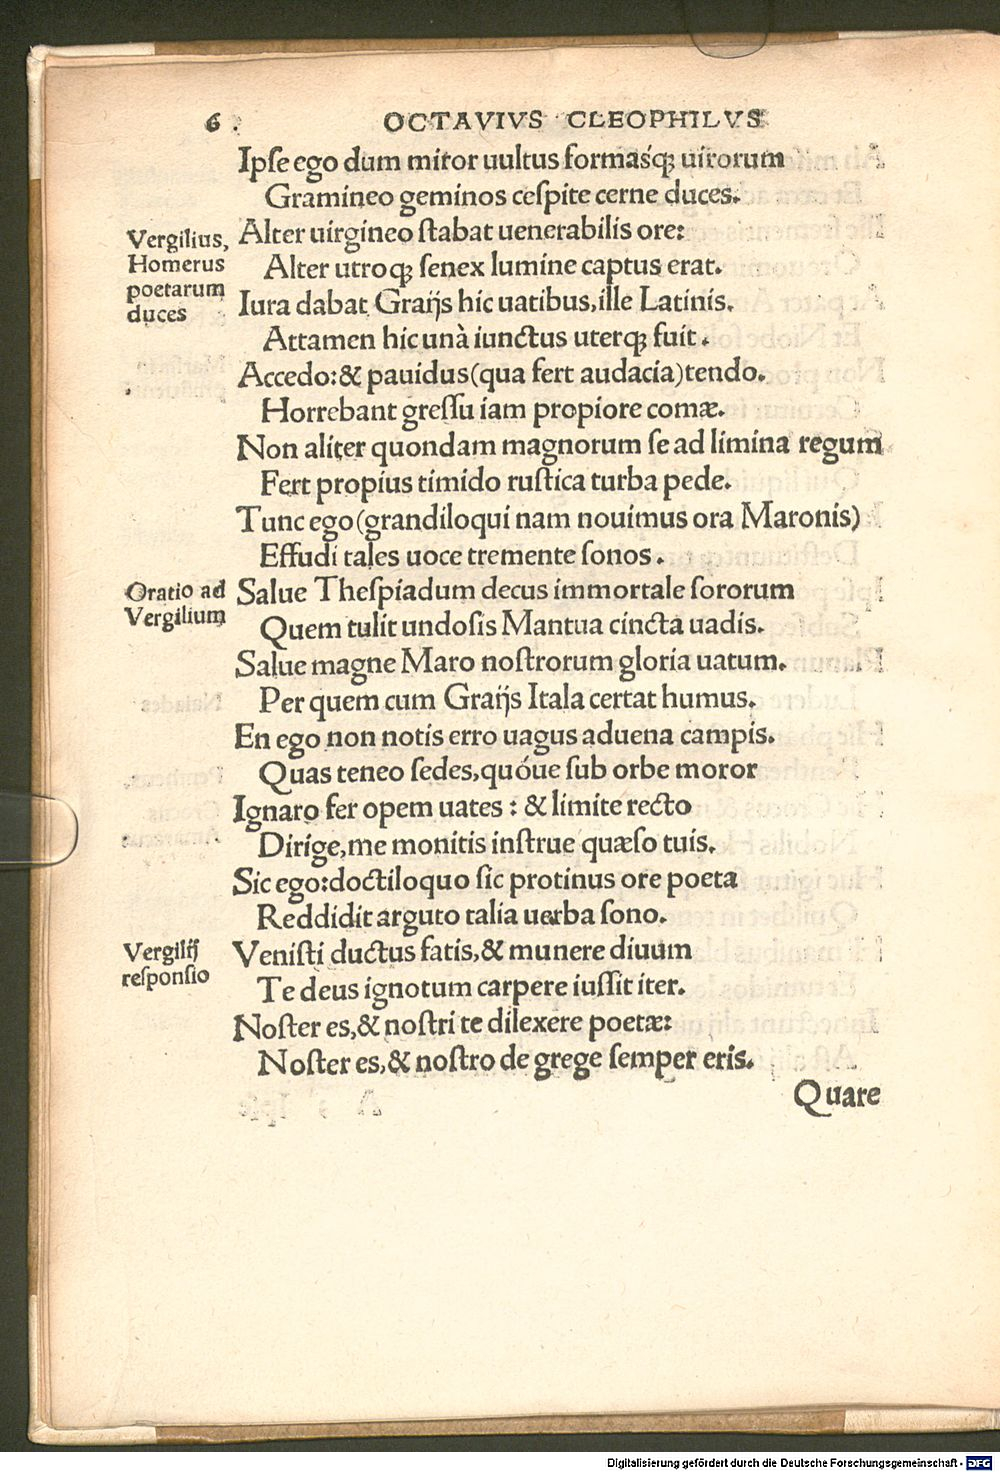 6 .
OCTAVIVS CLEOPHILVS
Ipſe ego dum miror uultus formasq́; uirorum
Gramineo geminos ceſpite cerne duces.
Vergilius,
Homerus
poetarum
duces
Alter uirgineo ſtabat uenerabilis ore:
Alter utroq; ſenex lumine captus erat.
Iura dabat Graijs hic uatibus, ille Latinis.
Attamen hic unà iunctus uterq; fuit.
Accedo: & pauidus (qua fert audacia) tendo.
Horrebant greſſu iam propiore comæ.
Non aliter quondam magnorum ſe ad limina regum
Fert propius timido ruſtica turba pede.
Tunc ego (grandiloqui nam nouimus ora Maronis)
Effudi tales uoce tremente ſonos.
Oratio ad
Vergilium
Salue Theſpiadum decus immortale ſororum
Quem tulit undoſis Mantua cincta uadis.
Salue magne Maro noſtrorum gloria uatum.
Per quem cum Graijs Itala certat humus.
En ego non notis erro uagus aduena campis.
Quas teneo ſedes, quóue ſub orbe moror
Ignaro fer opem uates: & limite recto
Dirige, me monitis inſtrue quæſo tuis.
Sic ego: doctiloquo ſic protinus ore poeta
Reddidit arguto talia uerba ſono.
Vergilij
reſponſio
Veniſti ductus fatis, & munere diuum
Te deus ignotum carpere iuſſit iter.
Noſter es, & noſtri te dilexere poetæ:
Noſter es, & noſtro de grege ſemper eris.
Quare
Digitalisierung gefördert durch die Deutsche Forschungsgemeinschaft - DFG